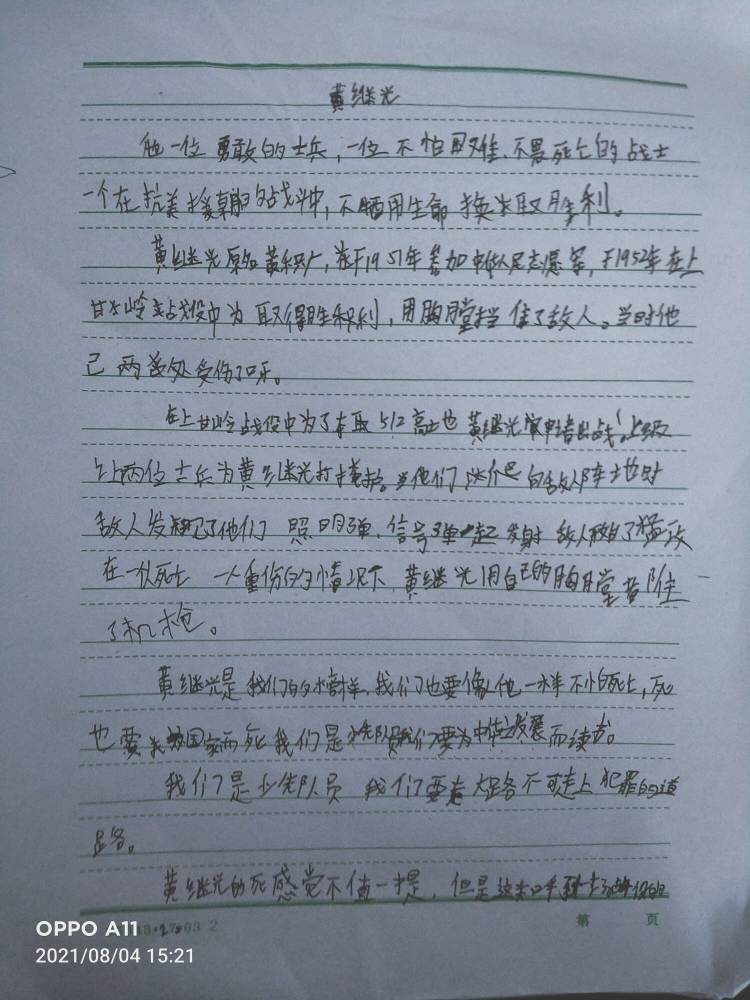 黄继光
他一位勇敢的士兵,一位不怕困难、不畏死亡的战士
一个在抗美援朝的战斗中,不牺用生命换来取胜利。
黄继光原名黄积广,于1951年参加中国人民志愿军,于1952年在上
甘岭战役中为取得胜利,用胸膛挡住了敌人。当时他
已两处受伤了。
在上甘岭战役中为了夺取512高地 黄继光申请出战,上级
让两位士兵为黄继光打掩护。当他们爬向敌人阵地时
敌人发现了他们 照明弹、信号弹一起发射 敌人
在一伙死亡 一人重伤的情况下 黄继光用自己的胸膛堵住
了机枪。
黄继光是我们的榜样,我们也要像他一样不怕死亡,死
也要为国家而死我们是少先队员我们要为发展而读书。
我们是少先队员 我们要走大路不可走上犯罪的道
路。
黄继光的死感觉不值一提,但是这
第 页
OPPO A11
2021/08/04 15:21